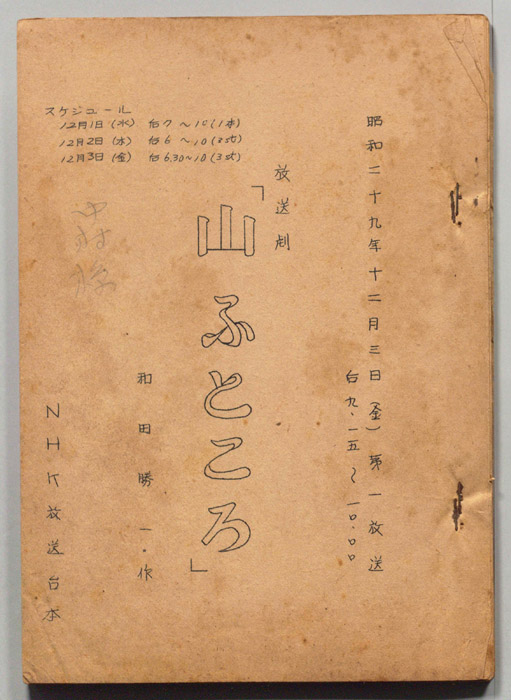 昭和二十九年十二月三日(金)第一放送
后九・一五〜一〇・〇〇
放送劇
「山ふところ」
和田勝一・作
NHK放送台本
スケジュール
12月1日(水) 后7〜10(1本)
12月2日(木) 后6〜10(3st)
12月3日(金) 后6.30〜10(3st)